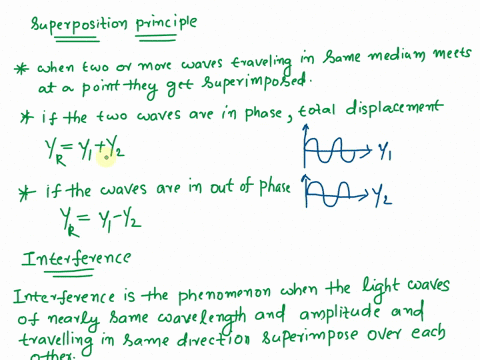 Superposition principle
* when two or more waves traveling in same mediam meets
at a point they get superimposed.
* if the two waves are in phase, total displacement
Y_R = Y_1 + Y_2
Y_1
* if the waves are in out of phase
Y_2
Y_R = Y_1 - Y_2
Interference
Interference is the phenomenon when the light waves
of nearly same wavelength and amplitude and
travelling in same direction superimpose over each
other.